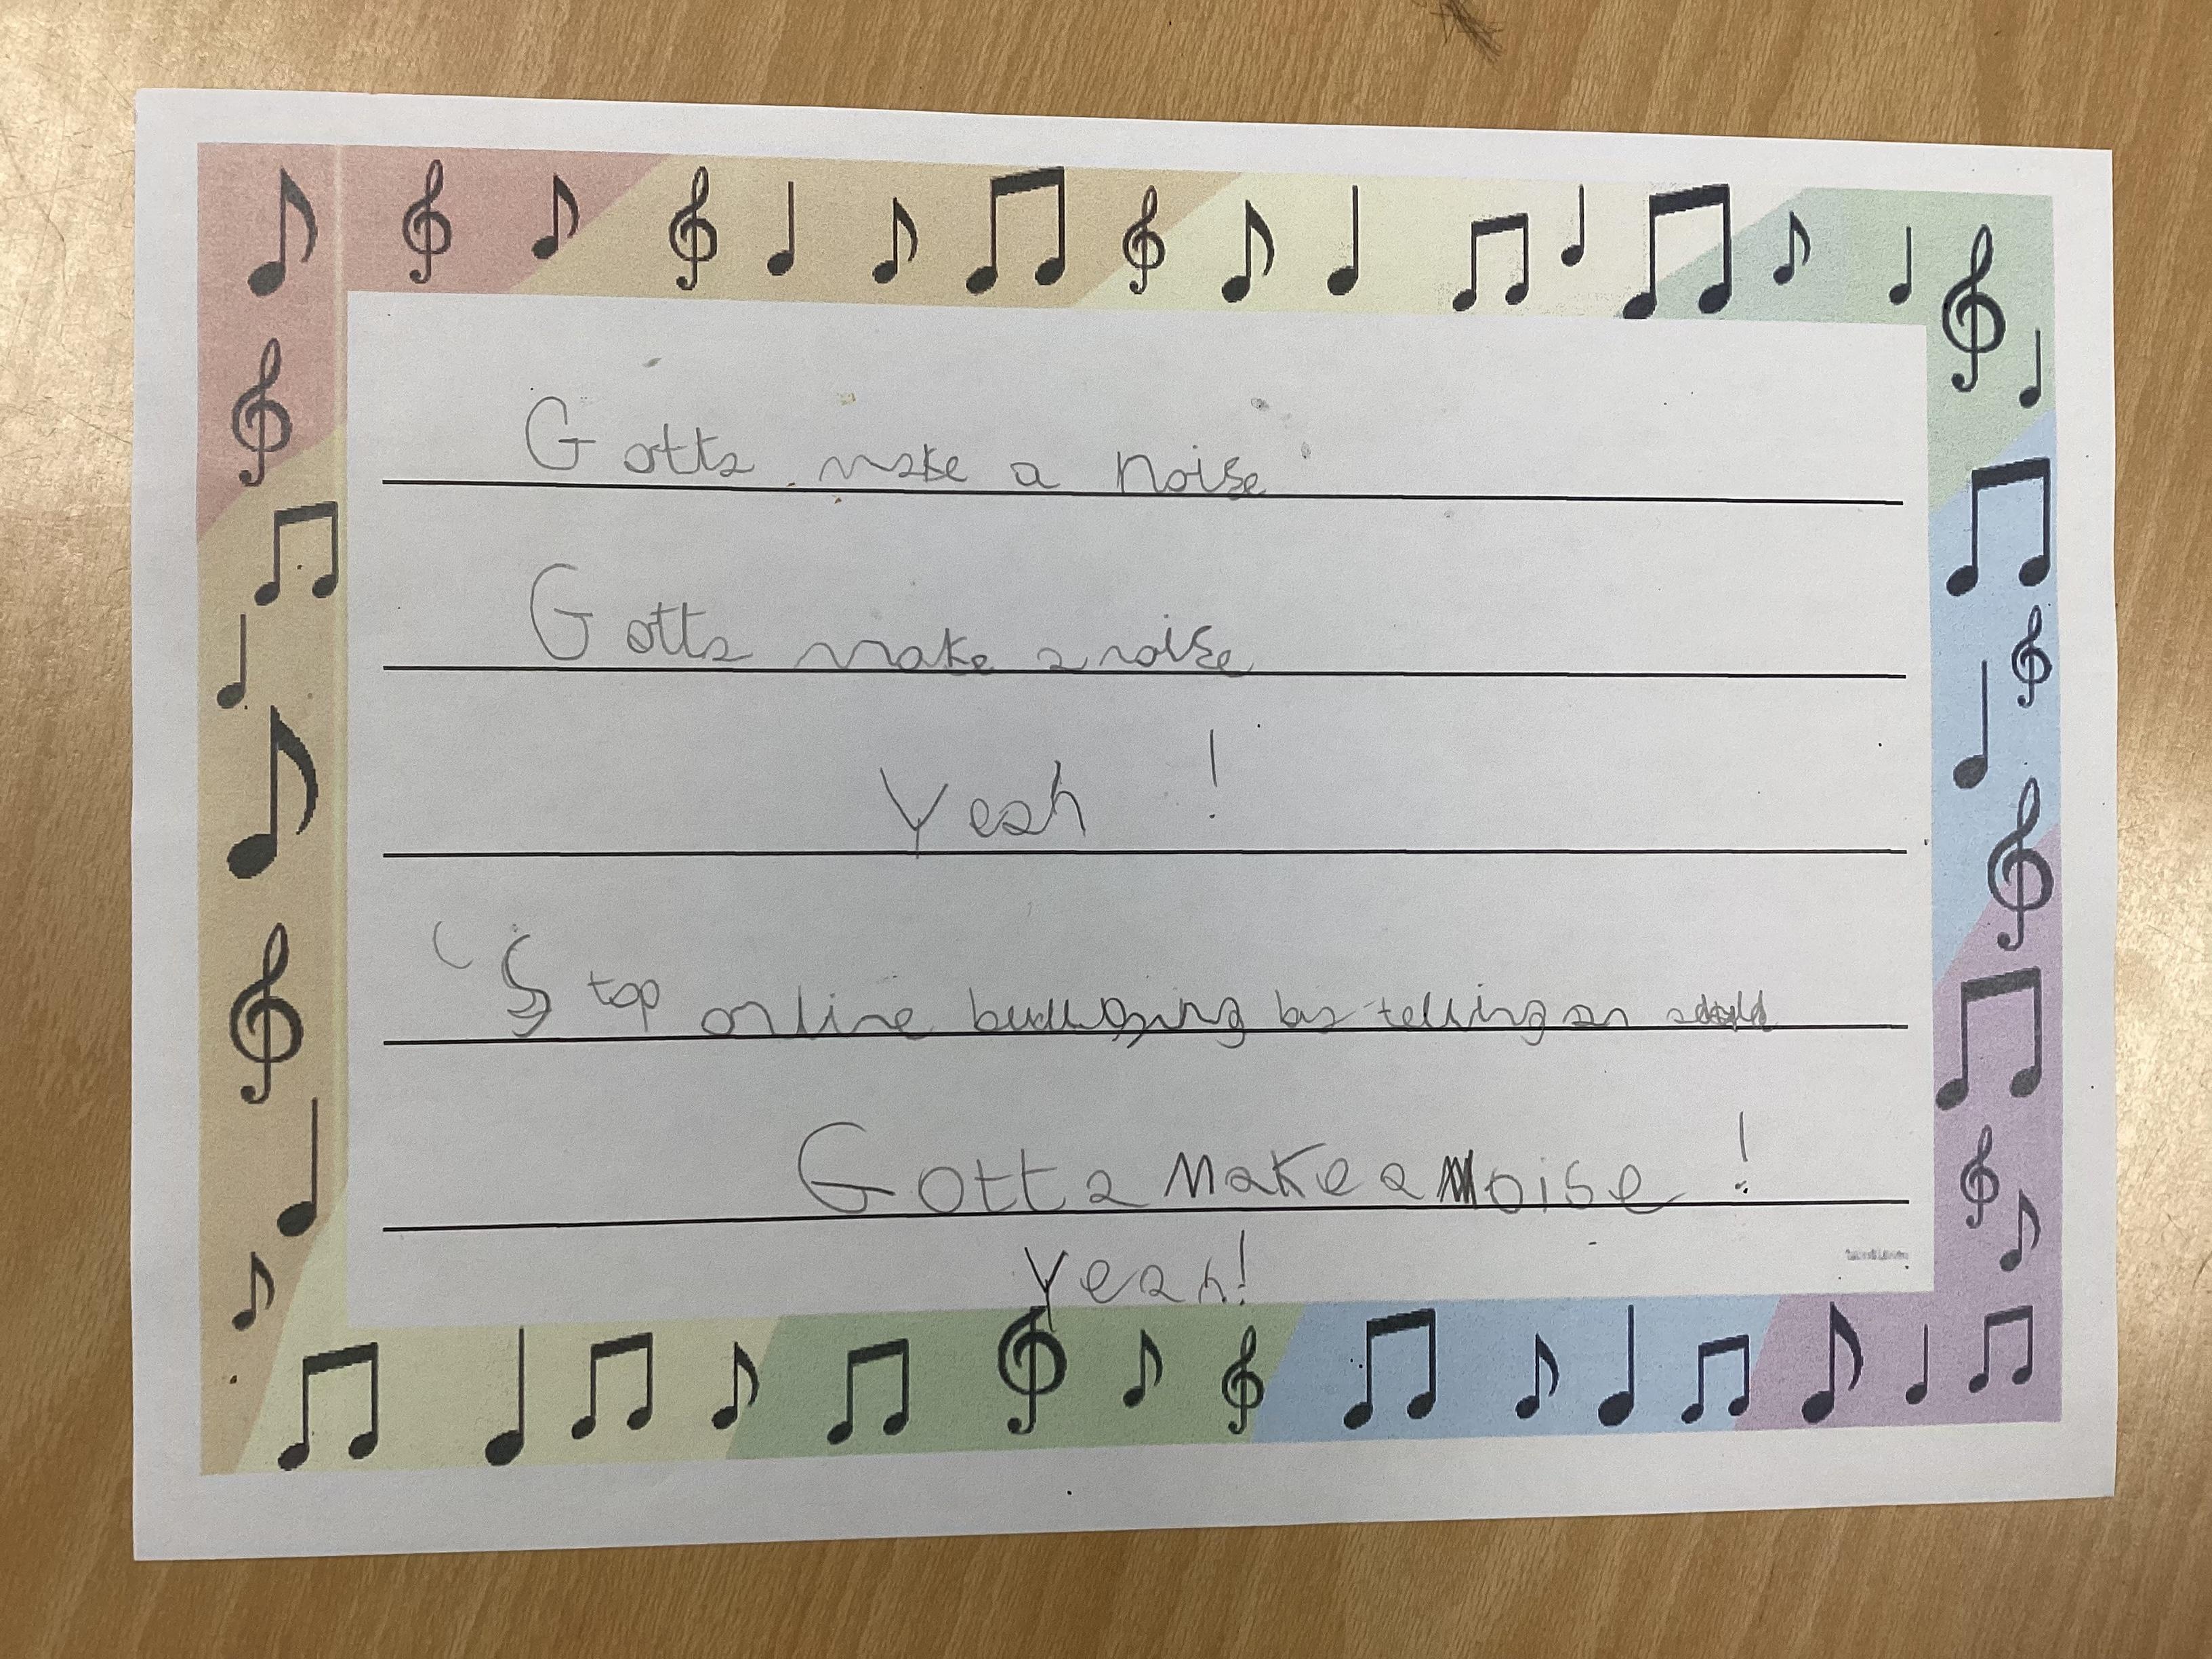 Gotta make a noise
Gotta make a noise
Yeah !
Stop online bullying by telling an adult
Gotta Make a Noise !
Yeah!